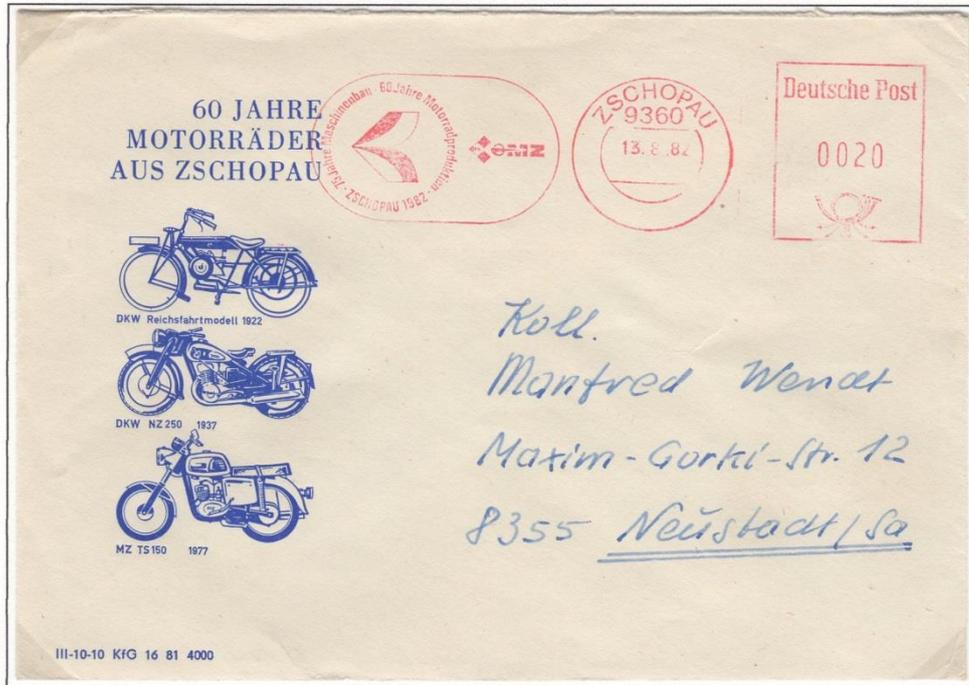 60 JAHRE
MOTORRÄDER
AUS ZSCHOPAU
75 Jahre Maschinenbau · 60 Jahre Motorradproduktion ·
ZSCHOPAU 1982 ·
MZ
ZSCHOPAU
9360
13.8.82
Deutsche Post
0020
DKW Reichsfahrtmodell 1922
DKW NZ 250 1937
MZ TS 150 1977
Koll.
Manfred Wendt
Maxim-Gorki-Str. 12
8355 Neustadt/Sa
III-10-10 KfG 16 81 4000